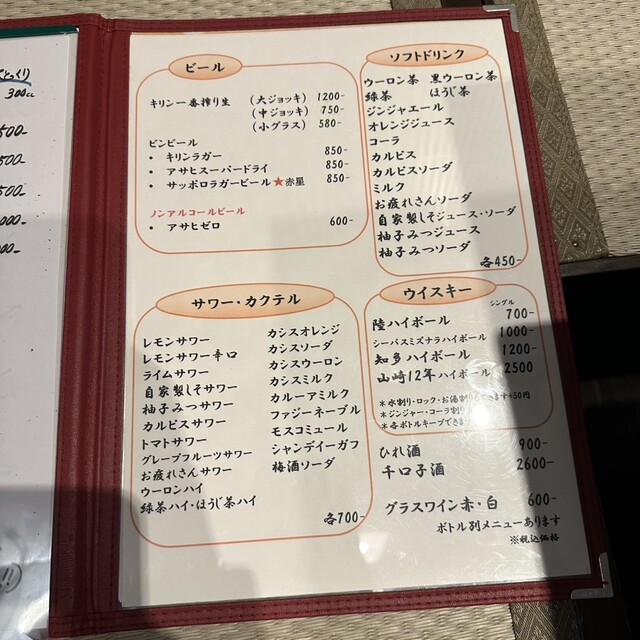 とっくり
300cc
500-
500-
500-
000-
000-
ビール
キリン一番搾り生 (大ジョッキ) 1200-
(中ジョッキ) 750-
(小グラス) 580-
ビンビール
・ キリンラガー 850-
・ アサヒスーパードライ 850-
・ サッポロラガービール★赤星 850-
ノンアルコールビール
・ アサヒゼロ 600-
ソフトドリンク
ウーロン茶 黒ウーロン茶
緑茶 ほうじ茶
ジンジャエール
オレンジジュース
コーラ
カルピス
カルピスソーダ
ミルク
お疲れさんソーダ
自家製しそジュース・ソーダ
柚子みつジュース
柚子みつソーダ
各450-
サワー・カクテル
レモンサワー
レモンサワー辛口
ライムサワー
自家製しそサワー
柚子みつサワー
カルピスサワー
トマトサワー
グレープフルーツサワー
お疲れさんサワー
ウーロンハイ
緑茶ハイ・ほうじ茶ハイ
カシスオレンジ
カシスソーダ
カシスウーロン
カシスミルク
カルーアミルク
ファジーネーブル
モスコミュール
シャンディーガフ
梅酒ソーダ
各700-
ウイスキー
シングル
陸ハイボール 700-
シーバスミズナラハイボール 1000-
知多ハイボール 1200-
山崎12年ハイボール 2500
*水割り・ロック・お湯割り できます+50円
*ジンジャー・コーラ割り
*各ボトルキープできま
ひれ酒 900-
千口子酒 2600-
グラスワイン赤・白 600-
ボトル別メニューあります
※税込価格